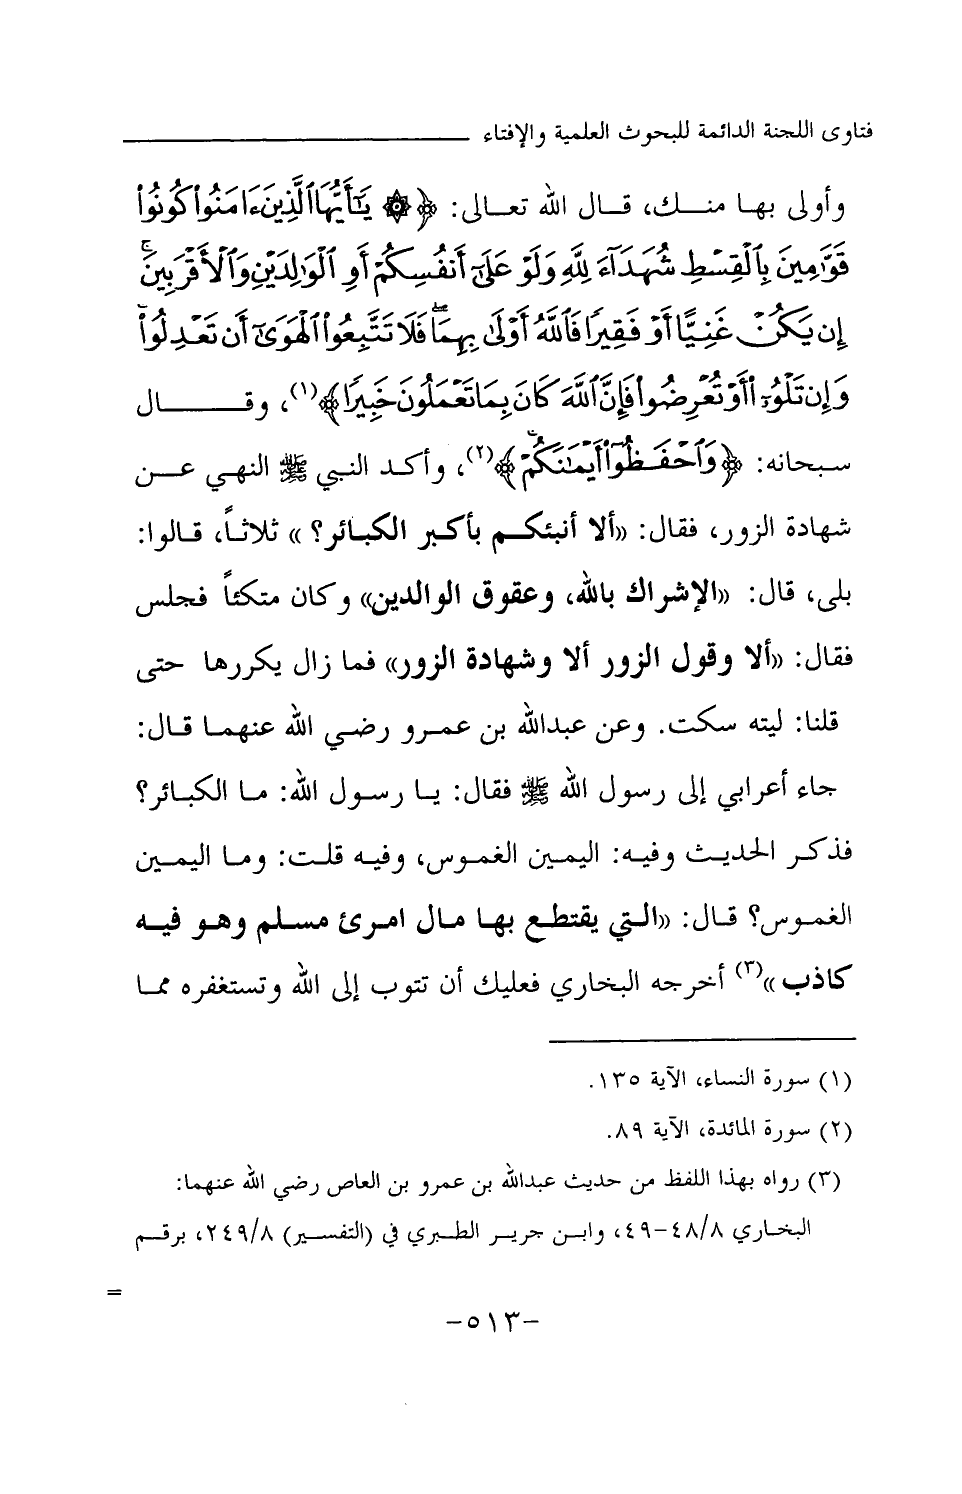 فتاوى اللجنة الدائمة للبحوث العلمية والإفتاء
وأولى بها منك، قال الله تعالى: ﴿۞ يَٰٓأَيُّهَا ٱلَّذِينَ ءَامَنُوا۟ كُونُوا۟
قَوَّٰمِينَ بِٱلْقِسْطِ شُهَدَآءَ لِلَّهِ وَلَوْ عَلَىٰٓ أَنفُسِكُمْ أَوِ ٱلْوَٰلِدَيْنِ وَٱلْأَقْرَبِينَ ۚ
إِن يَكُنْ غَنِيًّا أَوْ فَقِيرًا فَٱللَّهُ أَوْلَىٰ بِهِمَا ۖ فَلَا تَتَّبِعُوا۟ ٱلْهَوَىٰٓ أَن تَعْدِلُوا۟ ۚ
وَإِن تَلْوُۥٓا۟ أَوْ تُعْرِضُوا۟ فَإِنَّ ٱللَّهَ كَانَ بِمَا تَعْمَلُونَ خَبِيرًا﴾(١)، وقال
سبحانه: ﴿وَٱحْفَظُوٓا۟ أَيْمَٰنَكُمْ ۚ﴾(٢)، وأكد النبي ﷺ النهي عن
شهادة الزور، فقال: «ألا أنبئكم بأكبر الكبائر؟ » ثلاثاً، قالوا:
بلى، قال: «الإشراك بالله، وعقوق الوالدين» وكان متكئاً فجلس
فقال: «ألا وقول الزور ألا وشهادة الزور» فما زال يكررها حتى
قلنا: ليته سكت. وعن عبدالله بن عمرو رضي الله عنهما قال:
جاء أعرابي إلى رسول الله ﷺ فقال: يا رسول الله: ما الكبائر؟
فذكر الحديث وفيه: اليمين الغموس، وفيه قلت: وما اليمين
الغموس؟ قال: «التي يقتطع بها مال امرئ مسلم وهو فيه
كاذب»(٣) أخرجه البخاري فعليك أن تتوب إلى الله وتستغفره مما
(١) سورة النساء، الآية ١٣٥.
(٢) سورة المائدة، الآية ٨٩.
(٣) رواه بهذا اللفظ من حديث عبدالله بن عمرو بن العاص رضي الله عنهما:
البخاري ٤٨/٨-٤٩، وابن جرير الطبري في (التفسير) ٢٤٩/٨، برقم
=
-٥١٣-